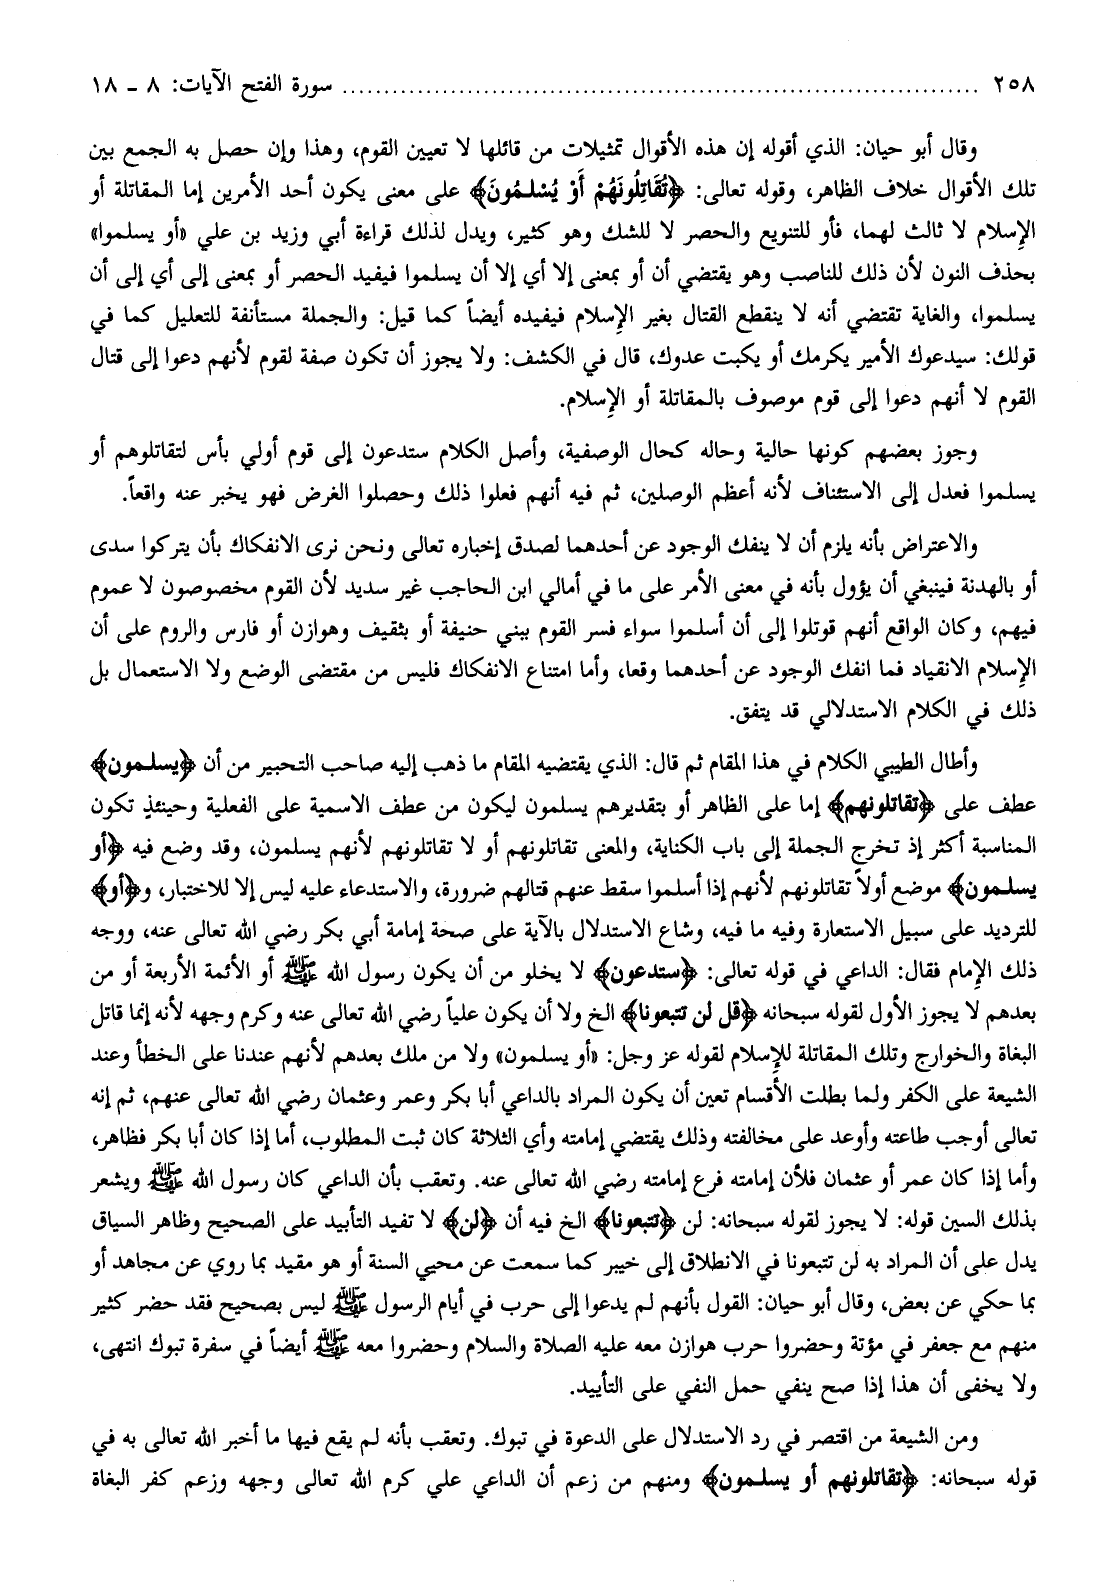 ٢٥٨ ........................................................................... سورة الفتح الآيات: ٨ ـ ١٨
وقال أبو حيان: الذي أقوله إن هذه الأقوال تمثيلات من قائلها لا تعيين القوم، وهذا وإن حصل به الجمع بين
تلك الأقوال خلاف الظاهر، وقوله تعالى: ﴿تُقَاتِلُونَهُمْ أَوْ يُسْلِمُونَ﴾ على معنى يكون أحد الأمرين إما المقاتلة أو
الإسلام لا ثالث لهما، فأو للتنويع والحصر لا للشك وهو كثير، ويدل لذلك قراءة أبي وزيد بن علي «أو يسلموا»
بحذف النون لأن ذلك للناصب وهو يقتضي أن أو بمعنى إلا أي إلا أن يسلموا فيفيد الحصر أو بمعنى إلى أي إلى أن
يسلموا، والغاية تقتضي أنه لا ينقطع القتال بغير الإسلام فيفيده أيضاً كما قيل: والجملة مستأنفة للتعليل كما في
قولك: سيدعوك الأمير يكرمك أو يكبت عدوك، قال في الكشف: ولا يجوز أن تكون صفة لقوم لأنهم دعوا إلى قتال
القوم لا أنهم دعوا إلى قوم موصوف بالمقاتلة أو الإسلام.
وجوز بعضهم كونها حالية وحاله كحال الوصفية، وأصل الكلام ستدعون إلى قوم أولي بأس لتقاتلوهم أو
يسلموا فعدل إلى الاستئناف لأنه أعظم الوصلين، ثم فيه أنهم فعلوا ذلك وحصلوا الغرض فهو يخبر عنه واقعاً.
والاعتراض بأنه يلزم أن لا ينفك الوجود عن أحدهما لصدق إخباره تعالى ونحن نرى الانفكاك بأن يتركوا سدى
أو بالهدنة فينبغي أن يؤول بأنه في معنى الأمر على ما في أمالي ابن الحاجب غير سديد لأن القوم مخصوصون لا عموم
فيهم، وكان الواقع أنهم قوتلوا إلى أن أسلموا سواء فسر القوم ببني حنيفة أو بثقيف وهوازن أو فارس والروم على أن
الإسلام الانقياد فما انفك الوجود عن أحدهما وقعا، وأما امتناع الانفكاك فليس من مقتضى الوضع ولا الاستعمال بل
ذلك في الكلام الاستدلالي قد يتفق.
وأطال الطيبي الكلام في هذا المقام ثم قال: الذي يقتضيه المقام ما ذهب إليه صاحب التحبير من أن ﴿يسلمون﴾
عطف على ﴿تقاتلونهم﴾ إما على الظاهر أو بتقديرهم يسلمون ليكون من عطف الاسمية على الفعلية وحينئذٍ تكون
المناسبة أكثر إذ تخرج الجملة إلى باب الكناية، والمعنى تقاتلونهم أو لا تقاتلونهم لأنهم يسلمون، وقد وضع فيه ﴿أو
يسلمون﴾ موضع أولاً تقاتلونهم لأنهم إذا أسلموا سقط عنهم قتالهم ضرورة، والاستدعاء عليه ليس إلا للاختبار، و﴿أو﴾
للترديد على سبيل الاستعارة وفيه ما فيه، وشاع الاستدلال بالآية على صحة إمامة أبي بكر رضي الله تعالى عنه، ووجه
ذلك الإمام فقال: الداعي في قوله تعالى: ﴿ستدعون﴾ لا يخلو من أن يكون رسول الله ﷺ أو الأئمة الأربعة أو من
بعدهم لا يجوز الأول لقوله سبحانه ﴿قل لن تتبعونا﴾ الخ ولا أن يكون علياً رضي الله تعالى عنه وكرم وجهه لأنه إنما قاتل
البغاة والخوارج وتلك المقاتلة للإسلام لقوله عز وجل: «أو يسلمون» ولا من ملك بعدهم لأنهم عندنا على الخطأ وعند
الشيعة على الكفر ولما بطلت الأقسام تعين أن يكون المراد بالداعي أبا بكر وعمر وعثمان رضي الله تعالى عنهم، ثم إنه
تعالى أوجب طاعته وأوعد على مخالفته وذلك يقتضي إمامته وأي الثلاثة كان ثبت المطلوب، أما إذا كان أبا بكر فظاهر،
وأما إذا كان عمر أو عثمان فلأن إمامته فرع إمامته رضي الله تعالى عنه. وتعقب بأن الداعي كان رسول الله ﷺ ويشعر
بذلك السين قوله: لا يجوز لقوله سبحانه: لن ﴿تتبعونا﴾ الخ فيه أن ﴿لن﴾ لا تفيد التأبيد على الصحيح وظاهر السياق
يدل على أن المراد به لن تتبعونا في الانطلاق إلى خيبر كما سمعت عن محيي السنة أو هو مقيد بما روي عن مجاهد أو
بما حكي عن بعض، وقال أبو حيان: القول بأنهم لم يدعوا إلى حرب في أيام الرسول ﷺ ليس بصحيح فقد حضر كثير
منهم مع جعفر في مؤتة وحضروا حرب هوازن معه عليه الصلاة والسلام وحضروا معه ﷺ أيضاً في سفرة تبوك انتهى،
ولا يخفى أن هذا إذا صح ينفي حمل النفي على التأييد.
ومن الشيعة من اقتصر في رد الاستدلال على الدعوة في تبوك. وتعقب بأنه لم يقع فيها ما أخبر الله تعالى به في
قوله سبحانه: ﴿تقاتلونهم أو يسلمون﴾ ومنهم من زعم أن الداعي علي كرم الله تعالى وجهه وزعم كفر البغاة